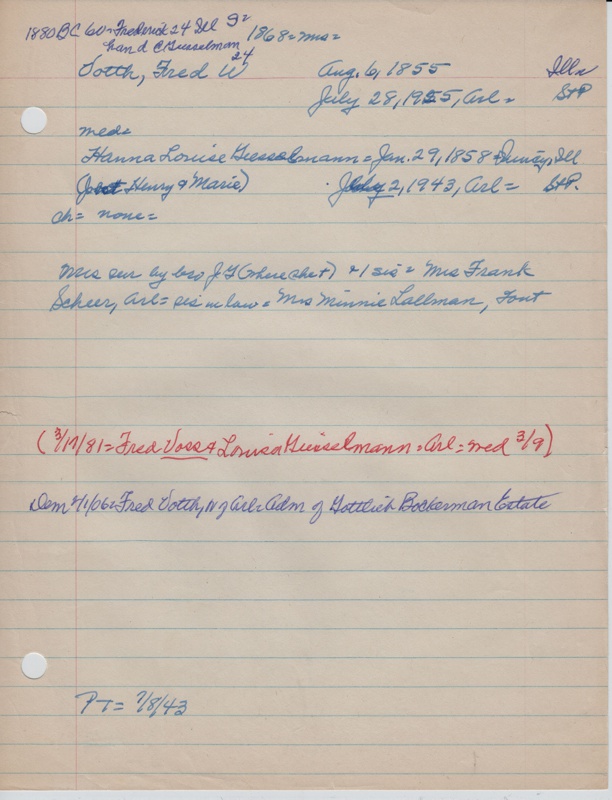 1880 BC 60= Frederick 24 Ill Gr 1868= mrs=
hand C Giesselman 24
Votth, Fred W Aug. 6, 1855 Ills
July 28, 1925, Arl= StP
med=
Hanna Louise Giesselmann= Jan. 29, 1858= Quincy, Ill
Henry & Marie) July 2, 1943, Arl= StP.
ch= none=
Mrs sur by bro J G (where chet) & 1 sis= Mrs Frank
Scheer, Arl= sis in law= Mrs Minnie Lallman, Font
(3/17/81= Fred Voss & Louisa Giesselmann= Arl= med 3/9)
Dem 1/06= Fred Votth, N of Arl= Adm of Gottlieb Bockerman Estate
PT= 7/8/43